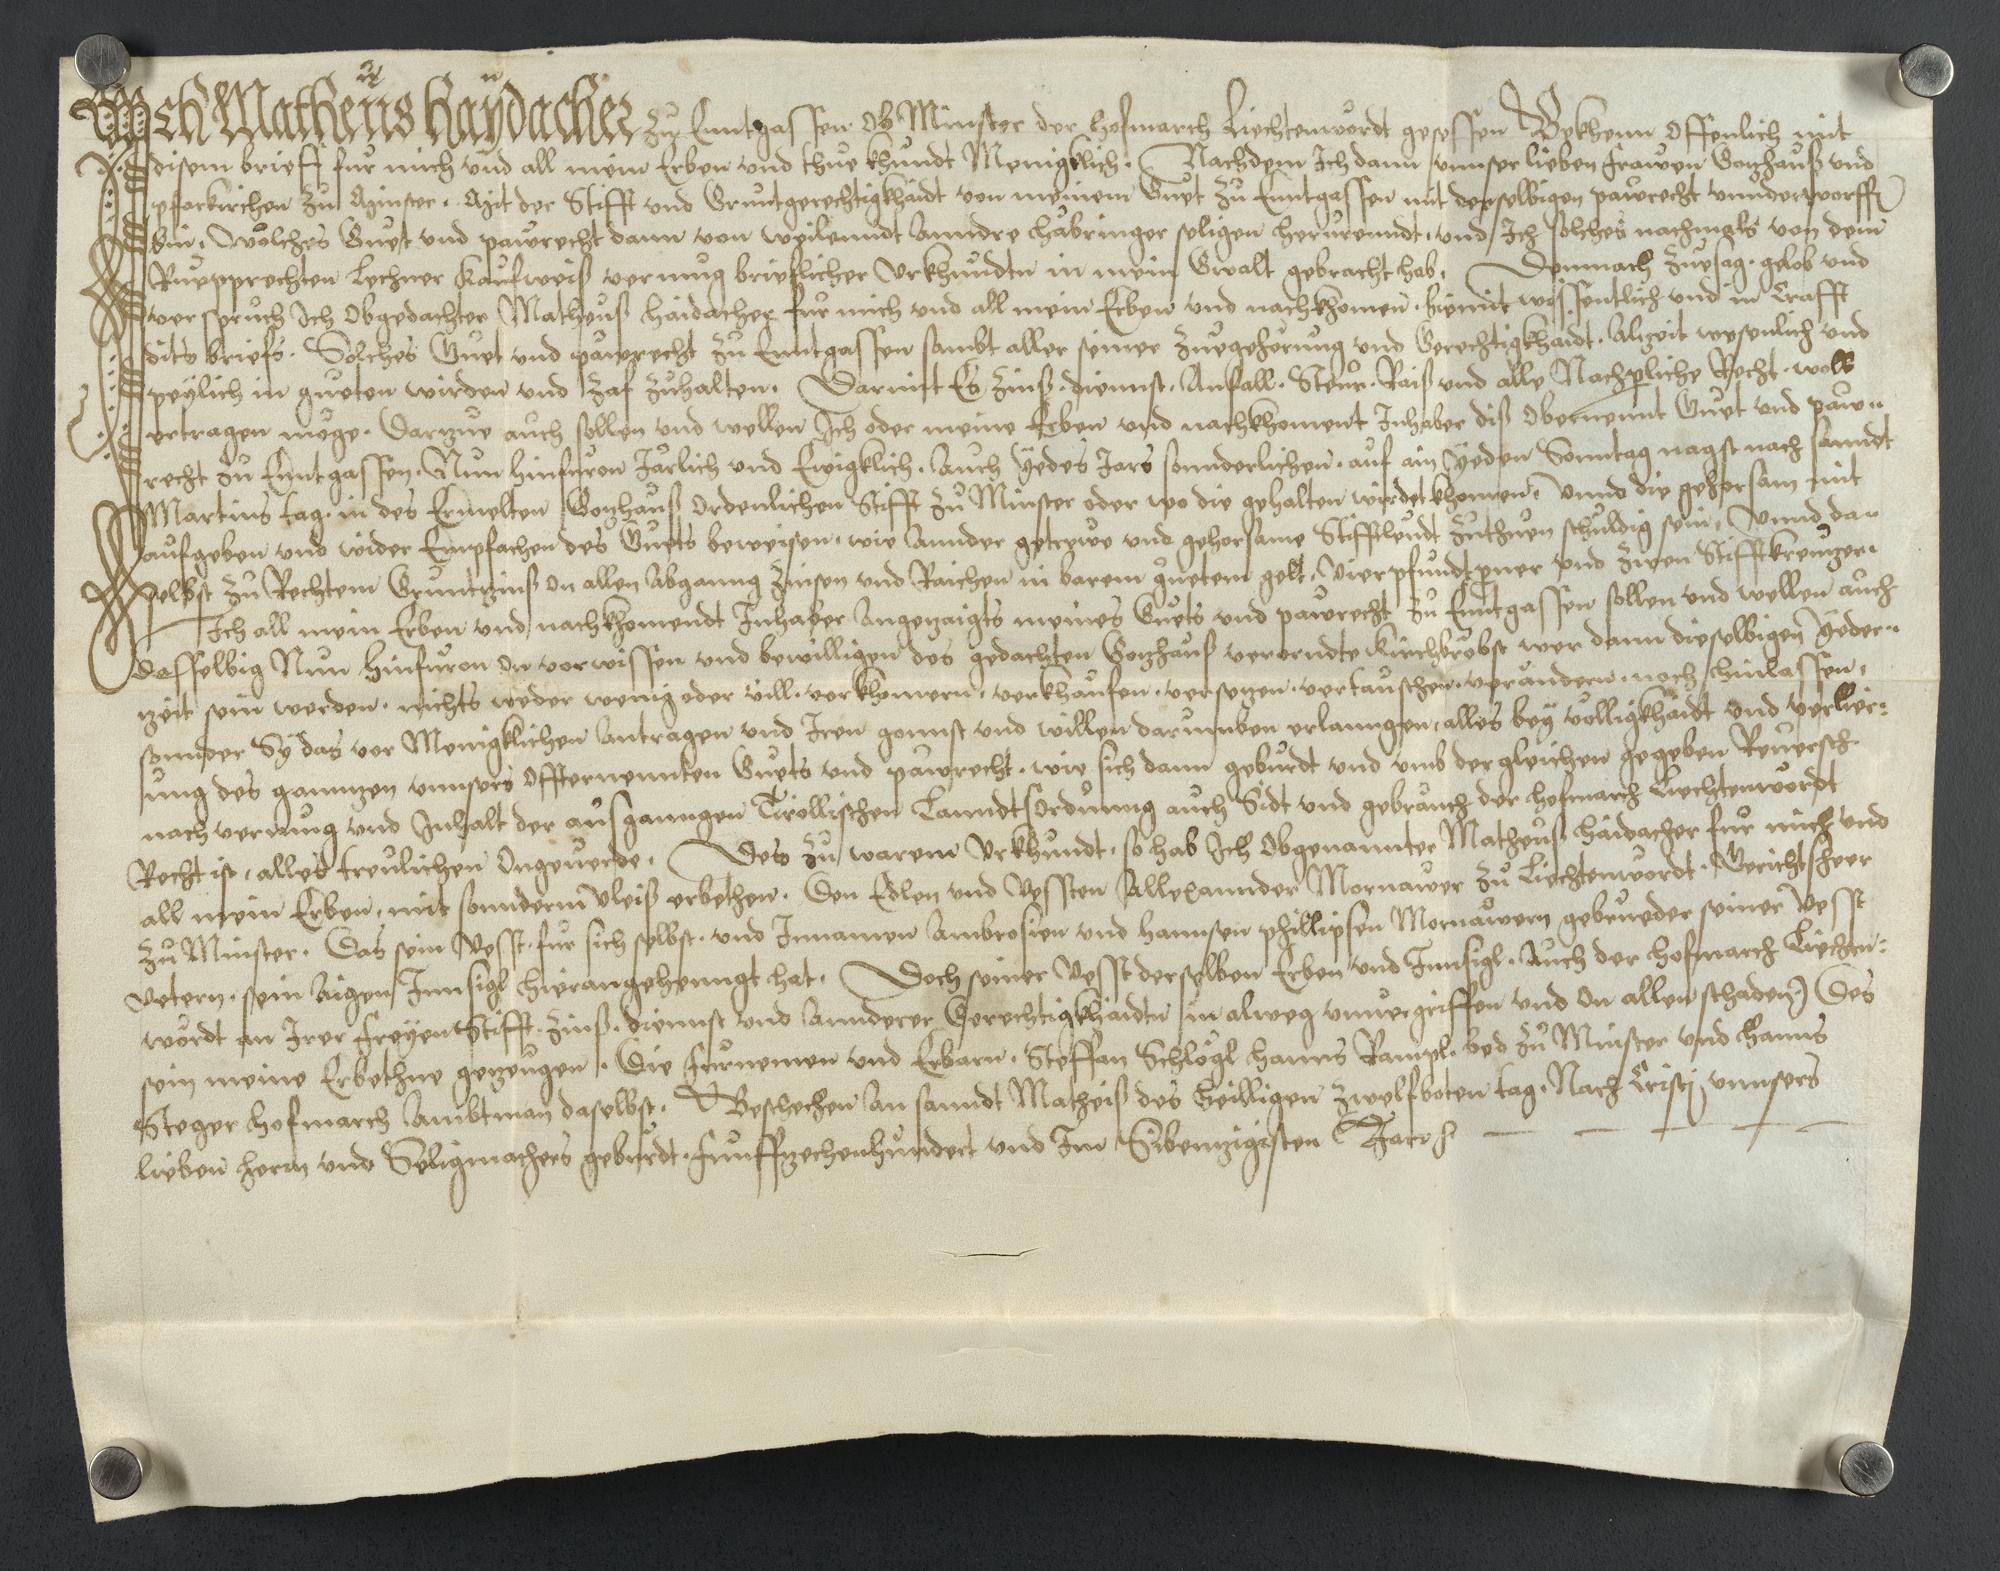 Ich Matheus Haydacher zu Enntgassen ob Minster der Hofmarch Liechtenwördt gesessen Bekhenn Offenlich mit
disem brieff fur mich und all mein Erben und thue khundt Menigklich. Nachdem Ich dann unnser lieben frawen Gozhauß und
pfarkirchen zu Minster. Mit der Stifft und Gruntgerechtigkhaidt von meinem Guet zu Enntgassen mit derselbigen pawrecht unnderworffn
bin. Wölches Guet und pawrecht dann von weilenndt Anndre Häbringer seligen herurenndt, und Ich solches nachmals von dem
Ruepprechten Lechner Kaufweiß vermug brieflicher Urkhundtn in mein Gwalt gebracht hab. Demnach Zuesag. gelob und
versprich Ich Obgedachter Matheuß Haidacher fur mich und all mein Erben und nachkhomen. hiemit wissentlich und in Crafft
dits briefs. Solches Guet und pawrecht zu Enntgassen sambt aller seiner Zuegehörung und Gerechtigkhaidt. Alzeit wesenlich und
peylich in gueten wirden und Zaf zuhalten. Darmit Es Zinß. diennst. Anfall. Steur. Raiß und alle Nachperliche Recht. woll
ertragen möge. Darzue auch sollen und wellen Ich oder meine Erben und nachkhoment Inhaber diß Obernennt Guet und paw=
recht zu Enntgassen. Nun hinfuron Järlich und Ewigklich. Auch Yedes Jars sonnderlichen. auf ain Yeden Sonntag nagst nach sanndt
Martins tag. in des Ermelten Gozhauß Ordenlichen Stifft zu Minster oder wo die gehalten wirdet khomen. Unnd die gehorsam mit
aufgeben und wider Empfachen des Guets beweisen. wie annder getrewe und gehorsame Stifftleudt Zuthuen schuldig sein. Unnd da=
selbst zu Rechtem Gruntzinß On allen Abganng Zinsen und Raichen in barem guetem gelt. Vier pfundt perner und zwen Stifftkreuzer.
Ich all mein Erben und nachkhomendt Inhaber Angezaigts meines Guets und pawrecht zu Enntgassen sollen und wellen auch
dasselbig Nun hinfuron On vorwissen und bewilligen des gedachten Gozhauß verorndte Kirchbröbst wer dann dieselbigen Yeder=
zeit sein werden. nichts weder wenig oder vill. verkhomern. verkhaufen. versezen. vertauschen. verändern. noch hinlassen.
sonnder Sy das vor Menigklichen Antragen und Iren gonnst und willen darumben erlanngen. alles bey völligkhaidt und verlier=
ung des gannzen unnsers Offternennten Guets und pawrecht. wie sich dann geburdt und umb der gleichen gegeben Reversch.
nach vermug und Inhalt der ausgangen Tirollischen Lanndtsordnung auch Sidt und gebrauch der Hofmarch Liechtenwordt
Recht ist. alles treulichen Ongeverde. Des zu warem Urkhundt. so hab Ich Obgenannter Matheuß Haidacher fur mich und
all mein Erben. mit sonnderm vleiß erbethen. Den Edlen und Vessten Allexannder Mornawer zu Liechtenwordt. Gerichtsherr
zu Minster. Das sein Vesst. fur sich selbst. und Innamen Ambrosien und Hannsen phillipsen Mornawern gebrueder seiner Vesst
Vetern. sein Aigen Innsigl hieran gehenngt hat. Doch seiner Vesst derselben Erben und Innsigl. Auch der Hofmarch Liechten=
wordt an Irer freyen Stifft. Zinß. diennst und Annderer Gerechtigkhaidtn in alweg unvergriffen und On allen schaden. Des
sein meine Erbethne gezeugen. Die furnemen und Erbarn. Steffan Schlögl Hanns Rampl. bed zu Minster und Hanns
Steger Hofmarch Ambtman daselbst. Beschechen An sanndt Matheiß des Heilligen Zwelfboten tag. Nach Cristj unnsers
lieben herrn und Seligmachers geburdt. funffzechenhundert und Im Sibenzigisten Jar